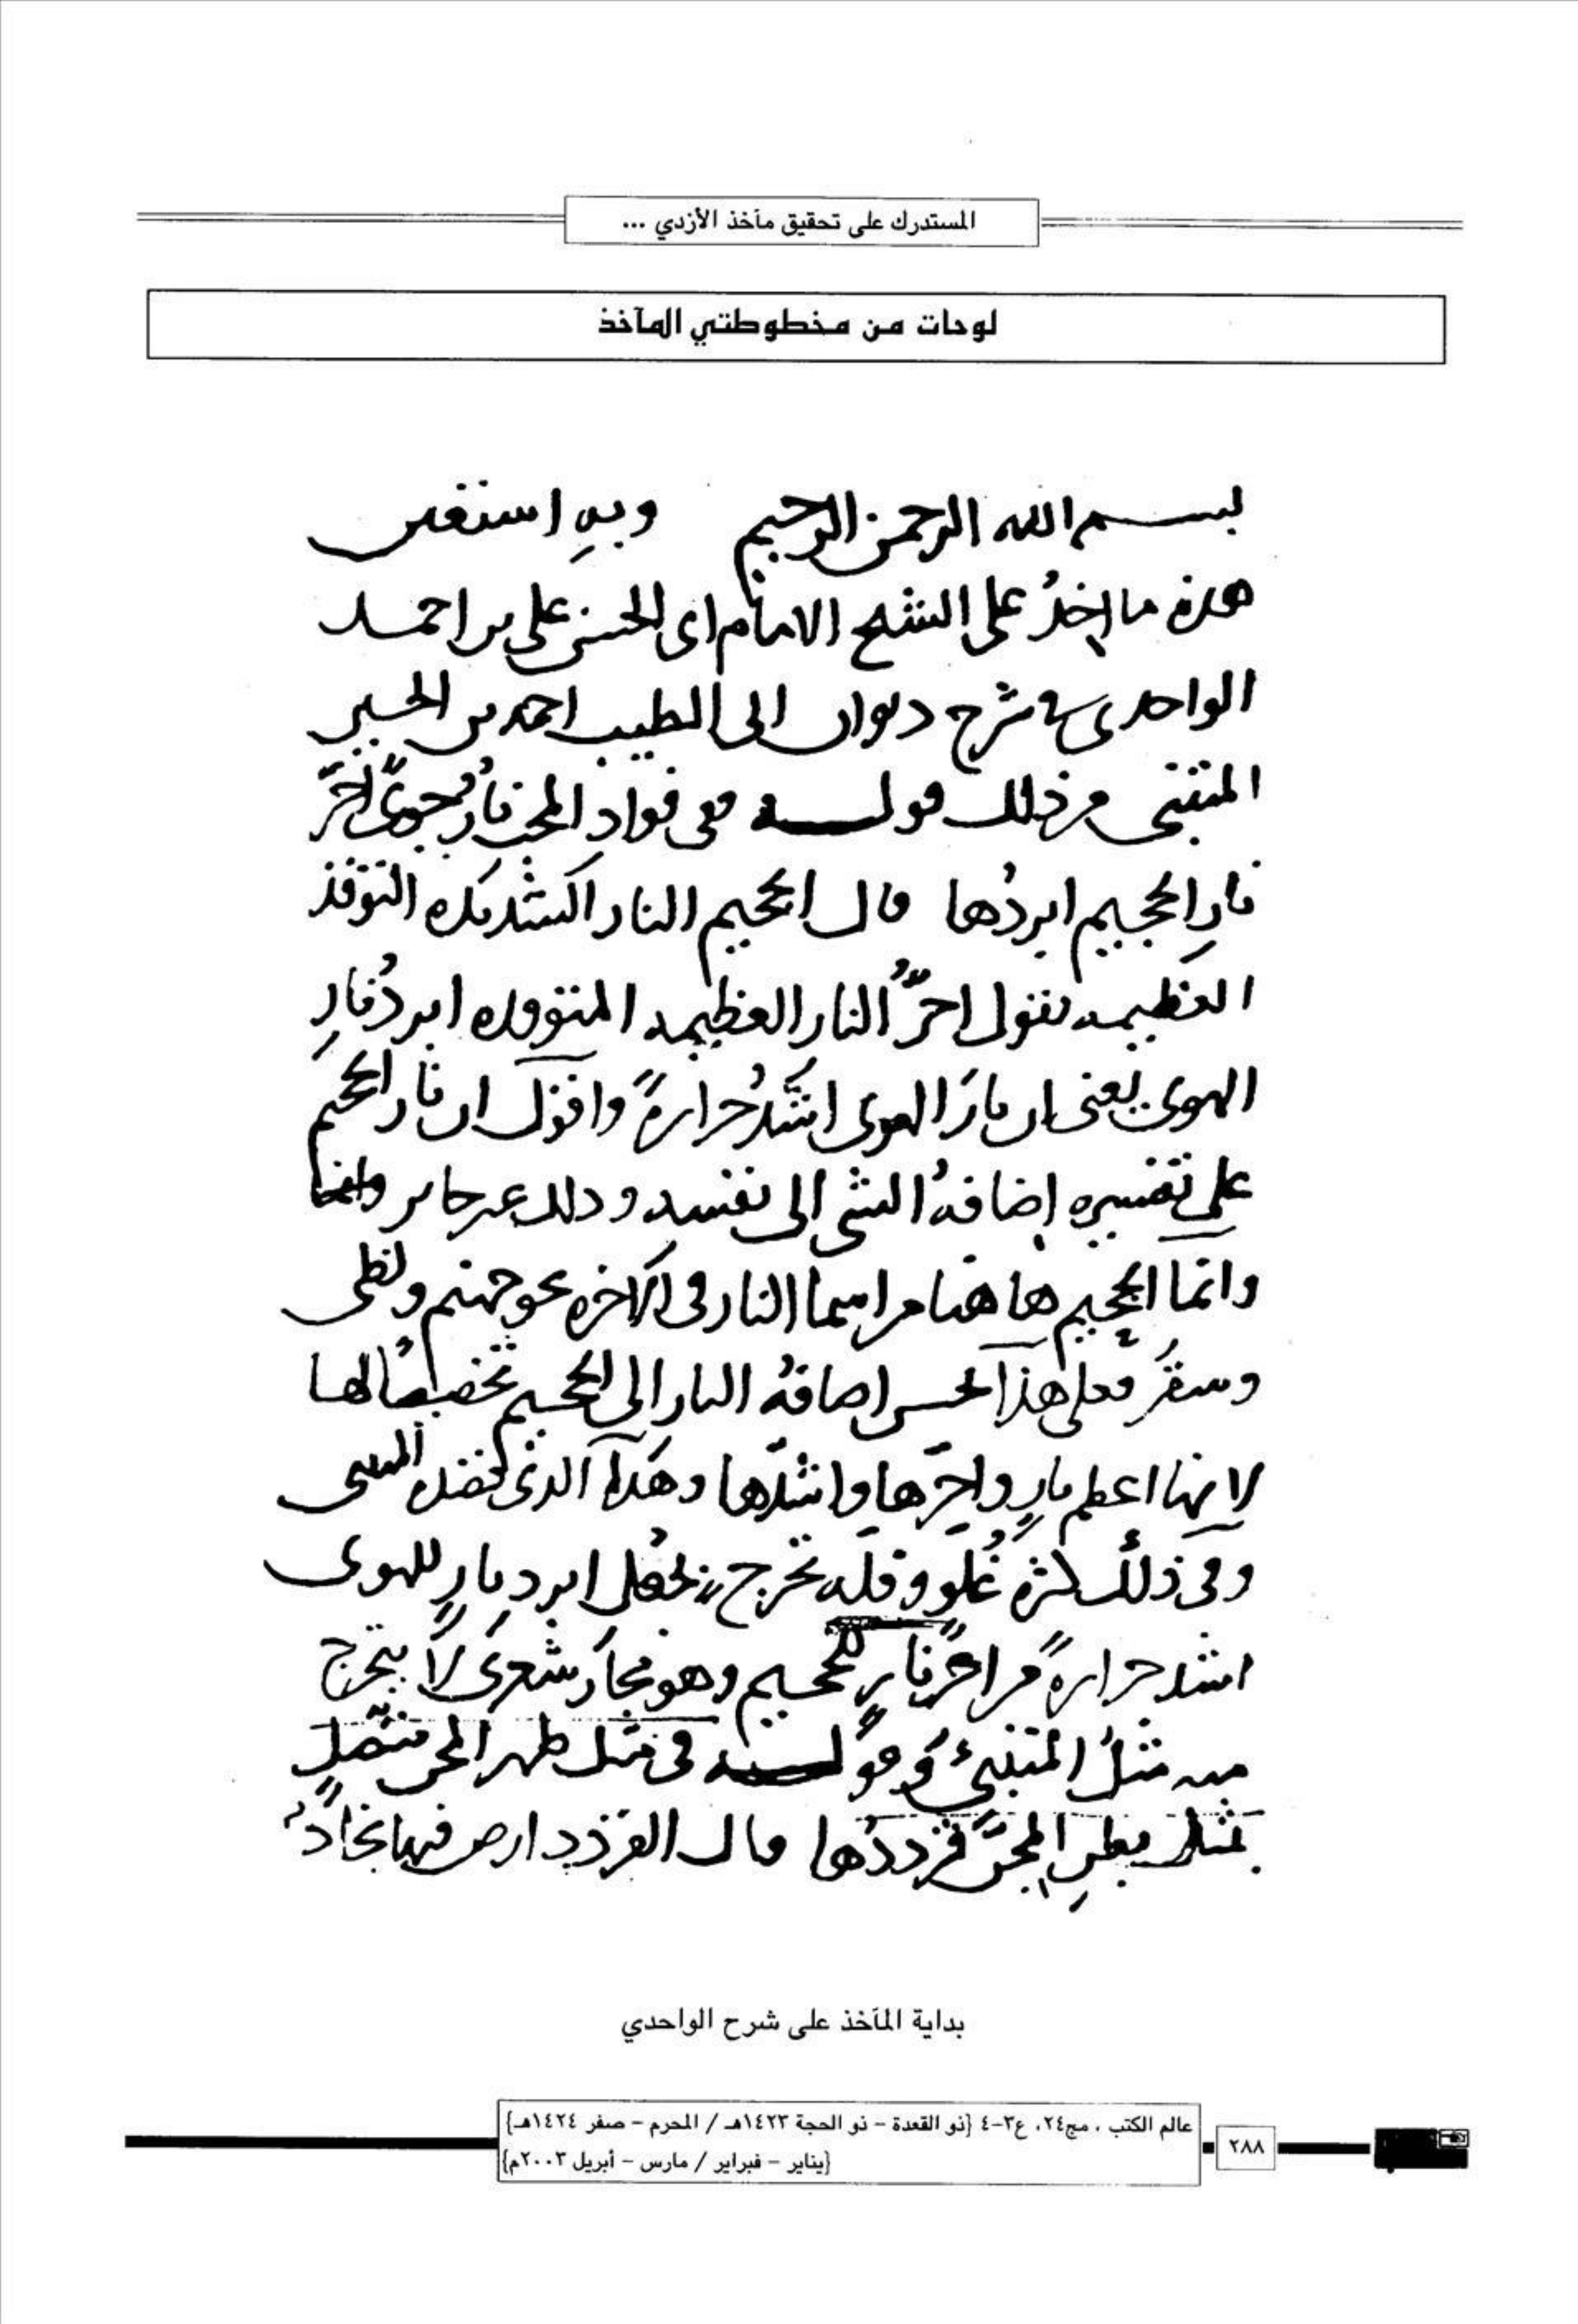 المستدرك على تحقيق مآخذ الأزدي ...
لوحات من مخطوطتي المآخذ
بسم الله الرحمن الرحيم وبه استعين
هذه مااخذُ على الشيخ الامام ابى الحسن على بن احمد
الواحدى فى شرح ديوان ابى الطيب احمد بن الحسين
المتنبى من ذلك قوله ففى فواد المحب نارُ جوىً احَرُّ
نارِ الجحيم ابردُها قال الجحيم النار الشديده التوقد
العظيمه يقول احرُّ النار العظيمه المتوقده ابردُ نارِ
الهوى يعنى ان نارَ الهوى اشدُّ حرارةً واقول ان نار الجحيم
على تفسيره إضافةُ الشى الى نفسه وذلك غير جايز
وانما الجحيم هاهنا من اسما النار فى الاخره نحو جهنم ولظى
وسقَر فعلى هذا تحسن اضافةُ النار الى الجحيم تخصيصًا لها
لانها اعظم نارٍ واحرّها واشدّها وهذا الذى قصده المتنبى
وفى ذلك كثرة غُلُو وقله تحرج بجعل ابرد نارٍ للهوى
اشد حرارةً من احرّ نارٍ للجحيم وهو مجاز شعرى لا يتحرج
منه مثلُ المتنبىء وقوله فى مثل ظهر المجن متصلٍ
بمثل بطنِ المجنّ قرددُها قال القردد ارض فيها نجادٌ
بداية المآخذ على شرح الواحدي
عالم الكتب ، مج٢٤، ع٣-٤ {ذو القعدة - ذو الحجة ١٤٢٣هـ / المحرم - صفر ١٤٢٤هـ}
{يناير - فبراير / مارس - أبريل ٢٠٠٣م}
٢٨٨